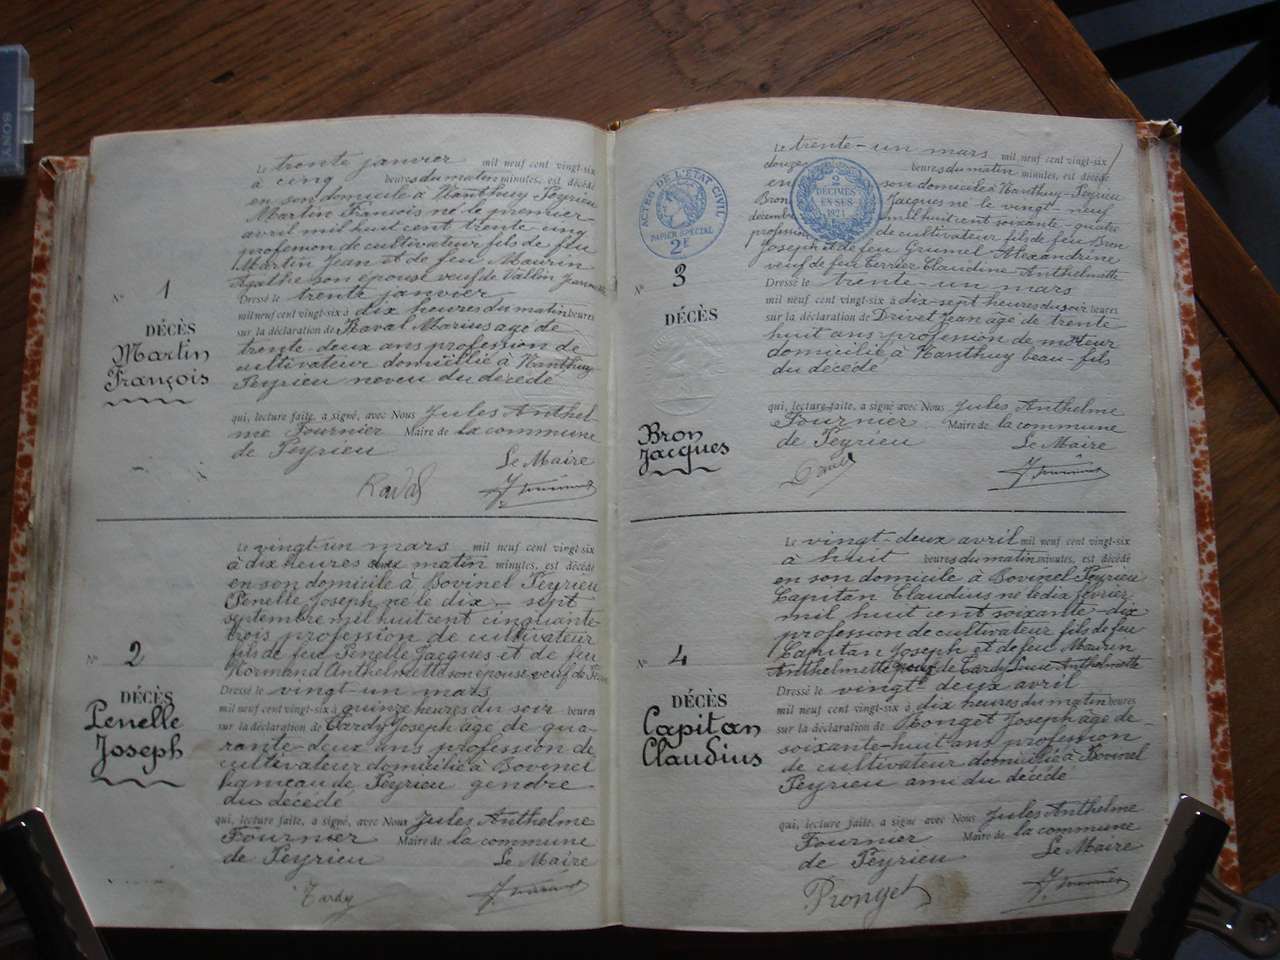 SONY
Le trente janvier mil neuf cent vingt-six
à cinq heures du matin minutes, est décédé
en son domicile à Nanthuy Peyrieu
Martin François né le premier
avril mil huit cent trente-un
profession de cultivateur fils de feu
Martin Jean et de feu Maurin
Agathe son épouse veuf de Vallin Jeannette
N° 1
DÉCÈS
Martin
François
Dressé le trente janvier
mil neuf cent vingt-six à dix heures du matin heures
sur la déclaration de Raval Marius âgé de
trente-deux ans profession de
cultivateur domicilié à Nanthuy
Peyrieu neveu du décédé
qui, lecture faite, a signé, avec Nous Jules Anthel-
me Fournier Maire de la commune
de Peyrieu
Le Maire
Raval
J. Fournier
Le vingt-un mars mil neuf cent vingt-six
à dix heures du matin minutes, est décédé
en son domicile à Bovinel Peyrieu
Penelle Joseph né le dix-sept
septembre mil huit cent cinquante-
trois profession de cultivateur
fils de feu Penelle Jacques et de feu
Normand Anthelmette son épouse veuf de
N° 2
DÉCÈS
Penelle
Joseph
Dressé le vingt-un mars
mil neuf cent vingt-six à quinze heures du soir heures
sur la déclaration de Tardy Joseph âgé de qua-
rante-deux ans profession de
cultivateur domicilié à Bovinel
hameau de Peyrieu gendre
du décédé
qui, lecture faite, a signé, avec Nous Jules Anthelme
Fournier Maire de la commune
de Peyrieu
Le Maire
Tardy
J. Fournier
ACTES DE L'ÉTAT CIVIL
PAPIER SPÉCIAL
2F
2
DÉCIMES
EN SUS
1921
Le trente-un mars mil neuf cent vingt-six
douze heures du matin minutes, est décédé
en son domicile à Nanthuy-Peyrieu
Bron Jacques né le vingt neuf
décembre mil huit cent soixante-quatre
profession de cultivateur fils de feu Bron
Joseph et de feu Grumel Alexandrine
veuf de feue Terrier Claudine-Anthelmette
N° 3
DÉCÈS
Bron
Jacques
Dressé le trente-un mars
mil neuf cent vingt-six à dix-sept heures du soir heures
sur la déclaration de Drivet Jean âgé de trente
huit ans profession de
domicilié à Nanthuy beau-fils
du décédé
qui, lecture faite, a signé, avec Nous Jules Anthelme
Fournier Maire de la commune
de Peyrieu
Le Maire
J. Fournier
Le vingt-deux avril mil neuf cent vingt-six
à huit heures du matin minutes, est décédé
en son domicile à Bovinel Peyrieu
Capitan Claudius né le dix février
mil huit cent soixante-dix
profession de cultivateur fils de feu
Capitan Joseph et de feu Maurin
Anthelmette veuf de Tardy Anthelmette
N° 4
DÉCÈS
Capitan
Claudius
Dressé le vingt-deux avril
mil neuf cent vingt-six à dix heures du matin heures
sur la déclaration de Ronget Joseph âgé de
soixante-huit ans profession
de cultivateur domicilié à Bovinel
Peyrieu ami du décédé
qui, lecture faite, a signé, avec Nous Jules Anthelme
Fournier Maire de la commune
de Peyrieu
Le Maire
J. Fournier